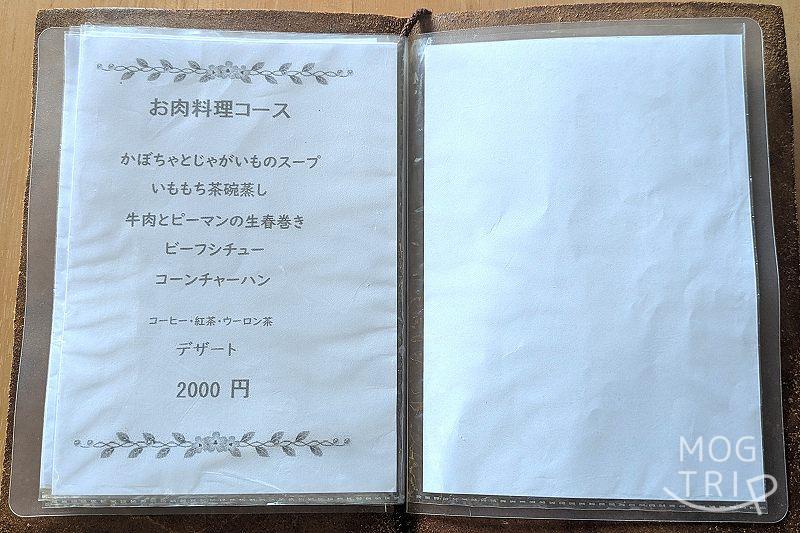 お肉料理コース
かぼちゃとじゃがいものスープ
いももち茶碗蒸し
牛肉とピーマンの生春巻き
ビーフシチュー
コーンチャーハン
コーヒー・紅茶・ウーロン茶
デザート
2000 円
MOG
TRIP